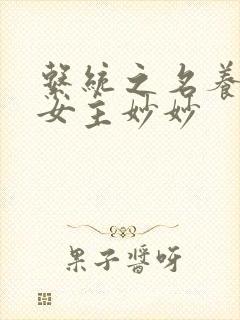 繫統之名養
女主妙妙
果子醬呀